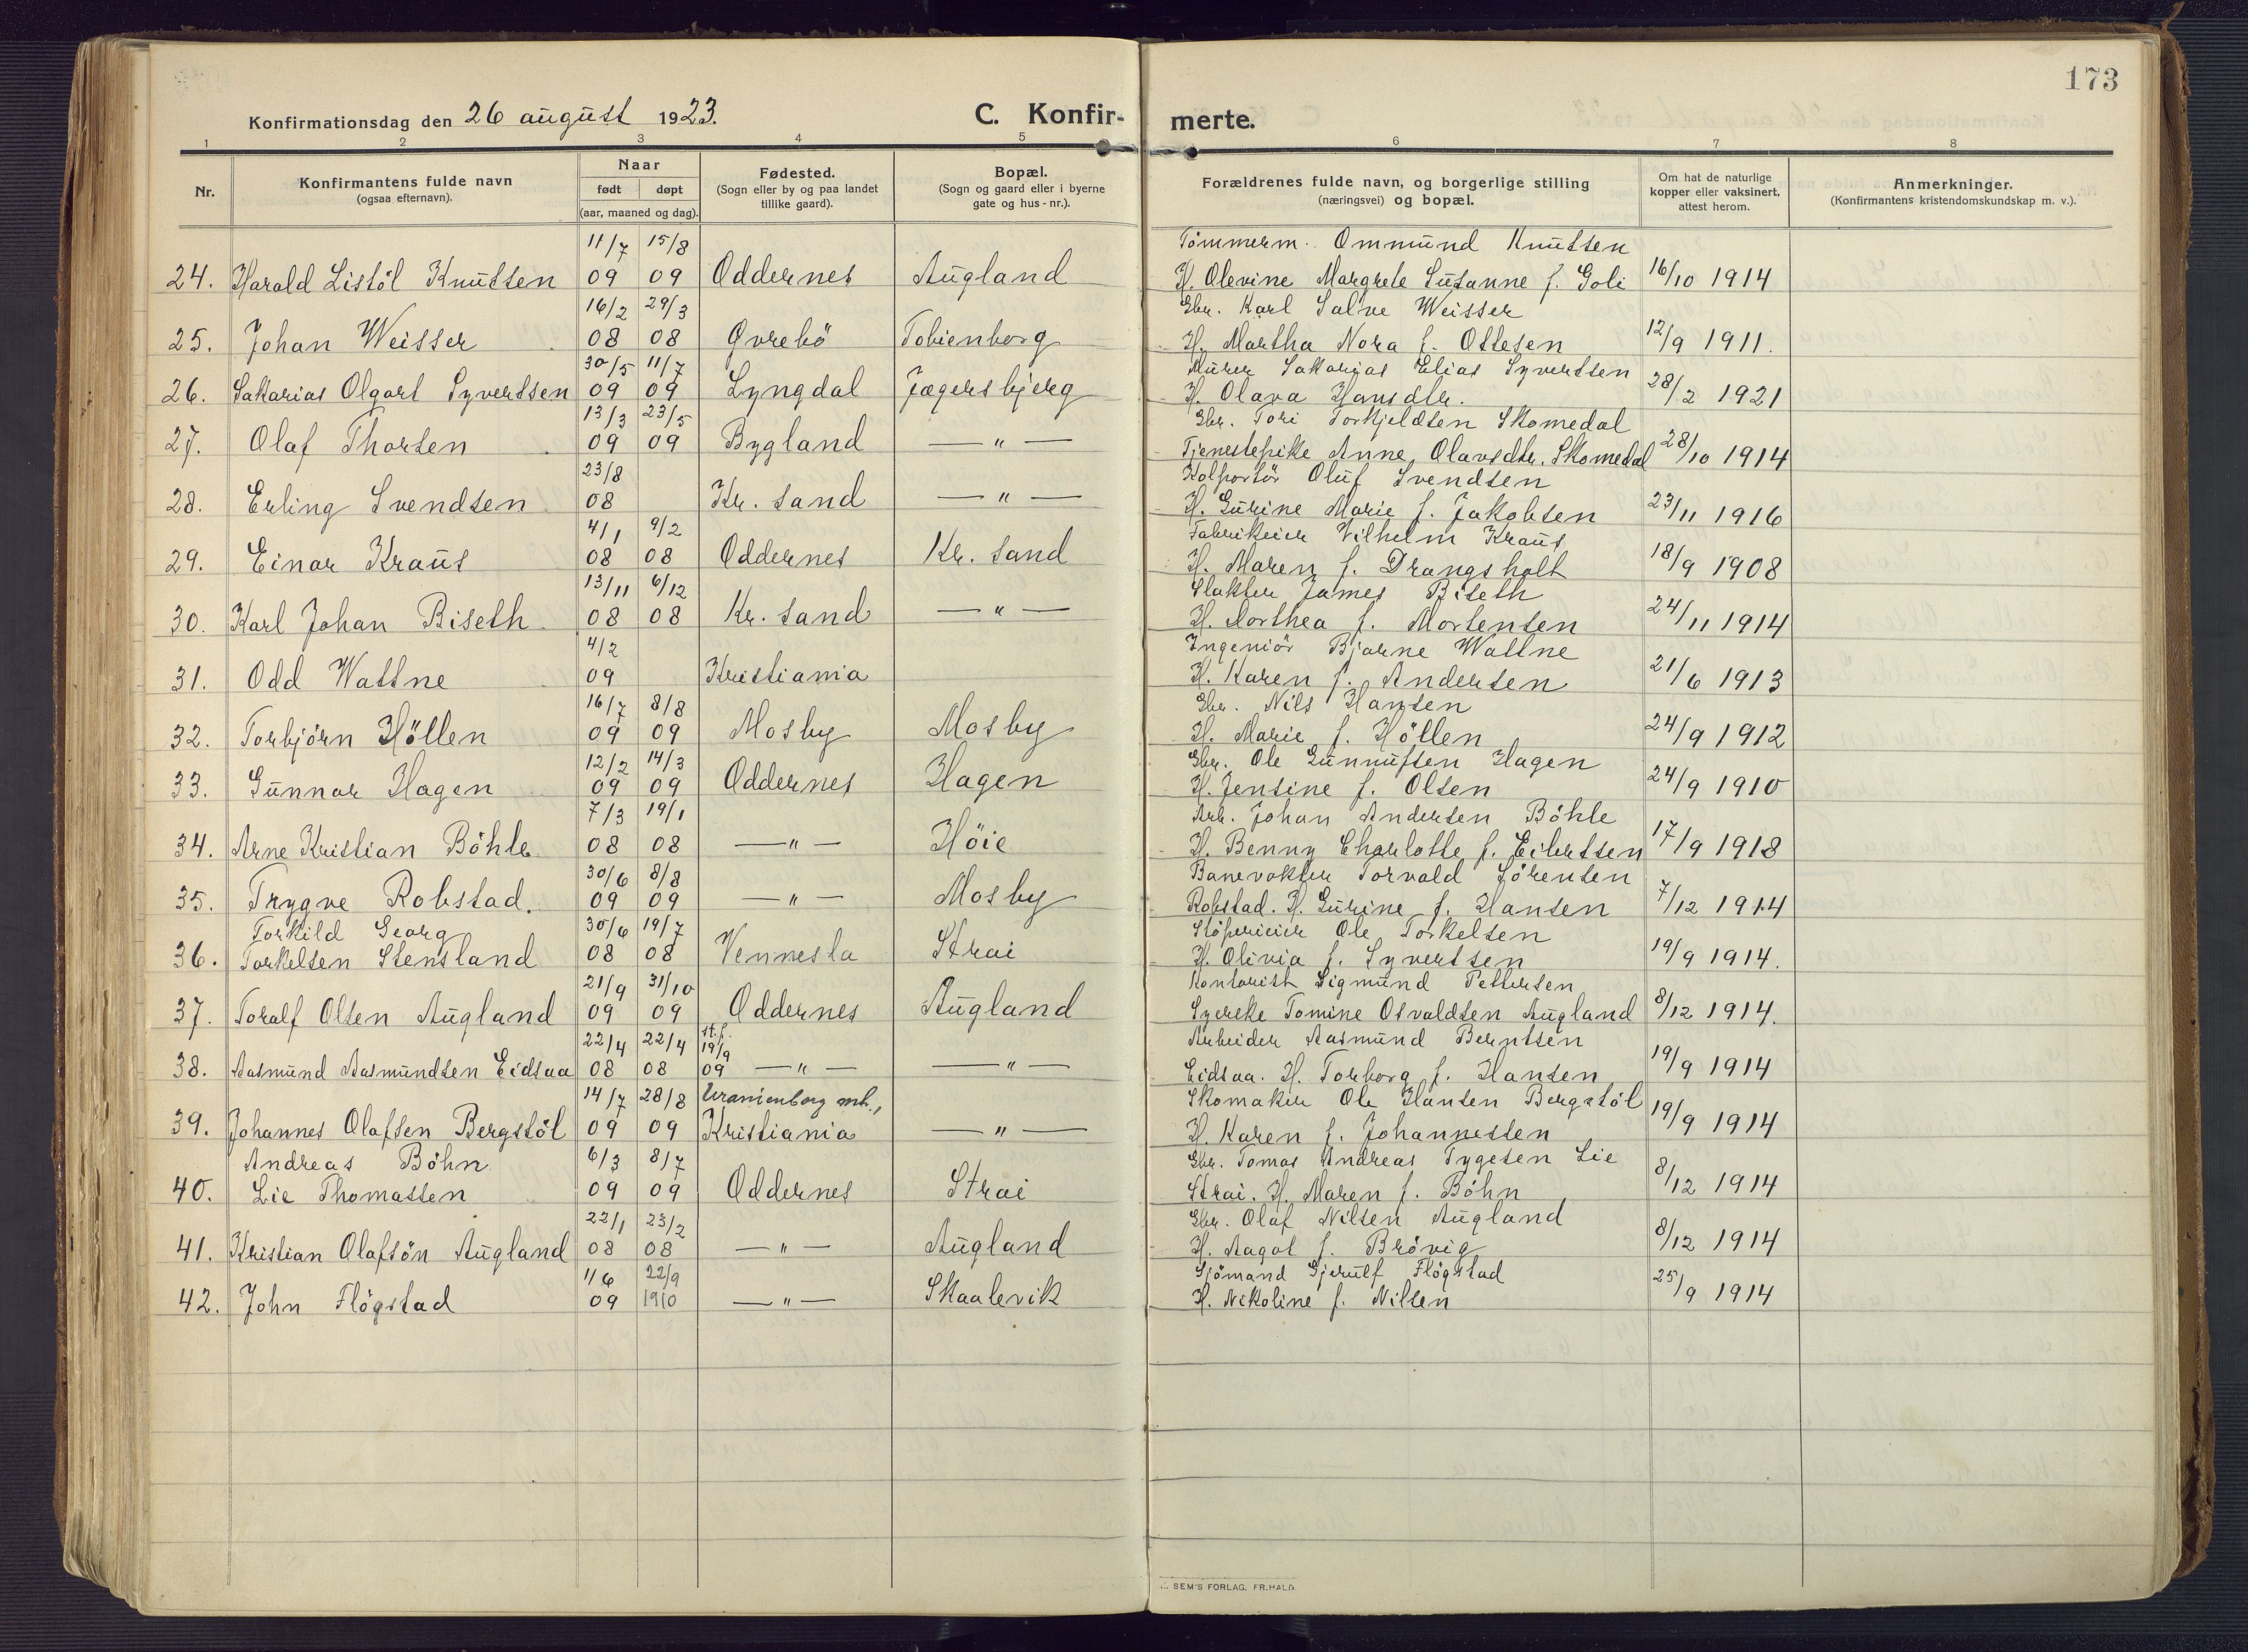 173
Konfirmationsdag den 26 august 1923.
C. Konfir-
merte.
1 2 3 4 5 6 7 8
Nr.
Konfirmantens fulde navn
(ogsaa efternavn).
Naar
født døpt
(aar, maaned og dag).
Fødested.
(Sogn eller by og paa landet
tillike gaard).
Bopæl.
(Sogn og gaard eller i byerne
gate og hus-nr.).
Forældrenes fulde navn, og borgerlige stilling
(næringsvei) og bopæl.
Om hat de naturlige
kopper eller vaksinert,
attest herom.
Anmerkninger.
(Konfirmantens kristendomskundskap m. v.).
11/7 15/8 Tømmerm. Ommund Knutsen
24. Harald Listöl Knutsen 09 09 Oddernes Augland H. Olevine Margrete Susanne f. Goli 16/10 1914
16/2 29/3 Gbr. Karl Salve Weisser
25. Johan Weisser 08 08 Øvrebö Tobienborg H. Martha Nora f. Ottesen 12/9 1911.
30/5 11/7 Murer Sakarias Elias Syvertsen
26. Sakarias Olgart Syvertsen 09 09 Lyngdal Jægersbjerg H. Olava Hansdtr. 28/2 1921
13/3 23/5 Gbr. Tori Torkjeldsen Skomedal
27. Olaf Thorsen 09 09 Bygland — " — Tjenestepike Anne Olavsdtr. Skomedal 28/10 1914
23/8 Kolportör Oluf Svendsen
28. Erling Svendsen 08 Kr. sand — " — H. Gurine Marie f. Jakobsen 23/11 1916
4/1 9/2 Fabrikeier Vilhelm Kraus
29. Einar Kraus 08 08 Oddernes Kr. sand H. Maren f. Drangsholt 18/9 1908
13/11 6/12 Slakter James Biseth
30. Karl Johan Biseth 08 08 Kr. sand — " — H. Dorthea f. Mortensen 24/11 1914
4/2 Ingeniör Bjarne Wattne
31. Odd Wattne 09 Kristiania H. Karen f. Andersen 21/6 1913
16/7 8/8 Gbr. Nils Hansen
32. Torbjörn Höllen 09 09 Mosby Mosby H. Marie f. Höllen 24/9 1912
12/2 14/3 Gbr. Ole Gunnufsen Hagen
33. Gunnar Hagen 09 09 Oddernes Hagen H. Jensine f. Olsen 24/9 1910
7/3 19/1 Arb. Johan Andersen Böhle
34. Arne Kristian Böhle 08 08 — " — Höie H. Benny Charlotte f. Eilertsen 17/9 1918
30/6 8/8 Banevokter Torvald Sörensen
35. Trygve Robstad. 09 09 — " — Mosby Robstad. H. Gurine f. Hansen 7/12 1914
Torkild Georg 30/6 19/7 Støperieier Ole Torkelsen
36. Torkelsen Stensland 08 08 Vennesla Strai H. Olivia f. Syvertsen 19/9 1914.
21/9 31/10 Kontorist Sigmund Pettersen
37. Toralf Olsen Augland 09 09 Oddernes Augland Syerske Tomine Osvaldsen Augland 8/12 1914.
22/4 22/4 st.f. 19/9 Arbeider Aasmund Berntsen
38. Aasmund Aasmundsen Eidsaa 08 08 09 — " — — " — Eidsaa. H. Torborg f. Hansen 19/9 1914
14/7 28/8 Uranienborg mh., Skomaker Ole Hansen Bergstöl
39. Johannes Olafsen Bergstöl 09 09 Kristiania — " — H. Karen f. Johannessen 19/9 1914
Andreas Böhn 6/3 8/7 Gbr. Tomas Andreas Tygesen Lie
40. Lie Thomassen 09 09 Oddernes Strai Strai. H. Maren f. Böhn 8/12 1914
22/1 23/2 Gbr. Olaf Nilsen Augland
41. Kristian Olafsön Augland 08 08 — " — Augland H. Aagot f. Brövig 8/12 1914
1/6 22/9 Sjömand Gjerulf Flögstad
42. John Flögstad 09 1910 — " — Skaalevik H. Nikoline f. Nilsen 25/9 1914
SEM'S FORLAG, FR.HALD.